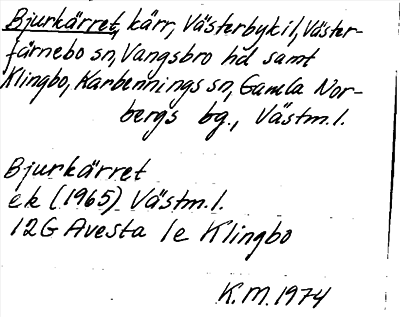 Bjurkärret, kärr, Västerbykil, Väster-
färnebo sn, Vangsbro hd samt
Klingbo, Karbennings sn, Gamla Nor-
bergs bg., Västm.l.
Bjurkärret
ek (1965) Västm.l.
12G Avesta 1e Klingbo
K.M. 1974